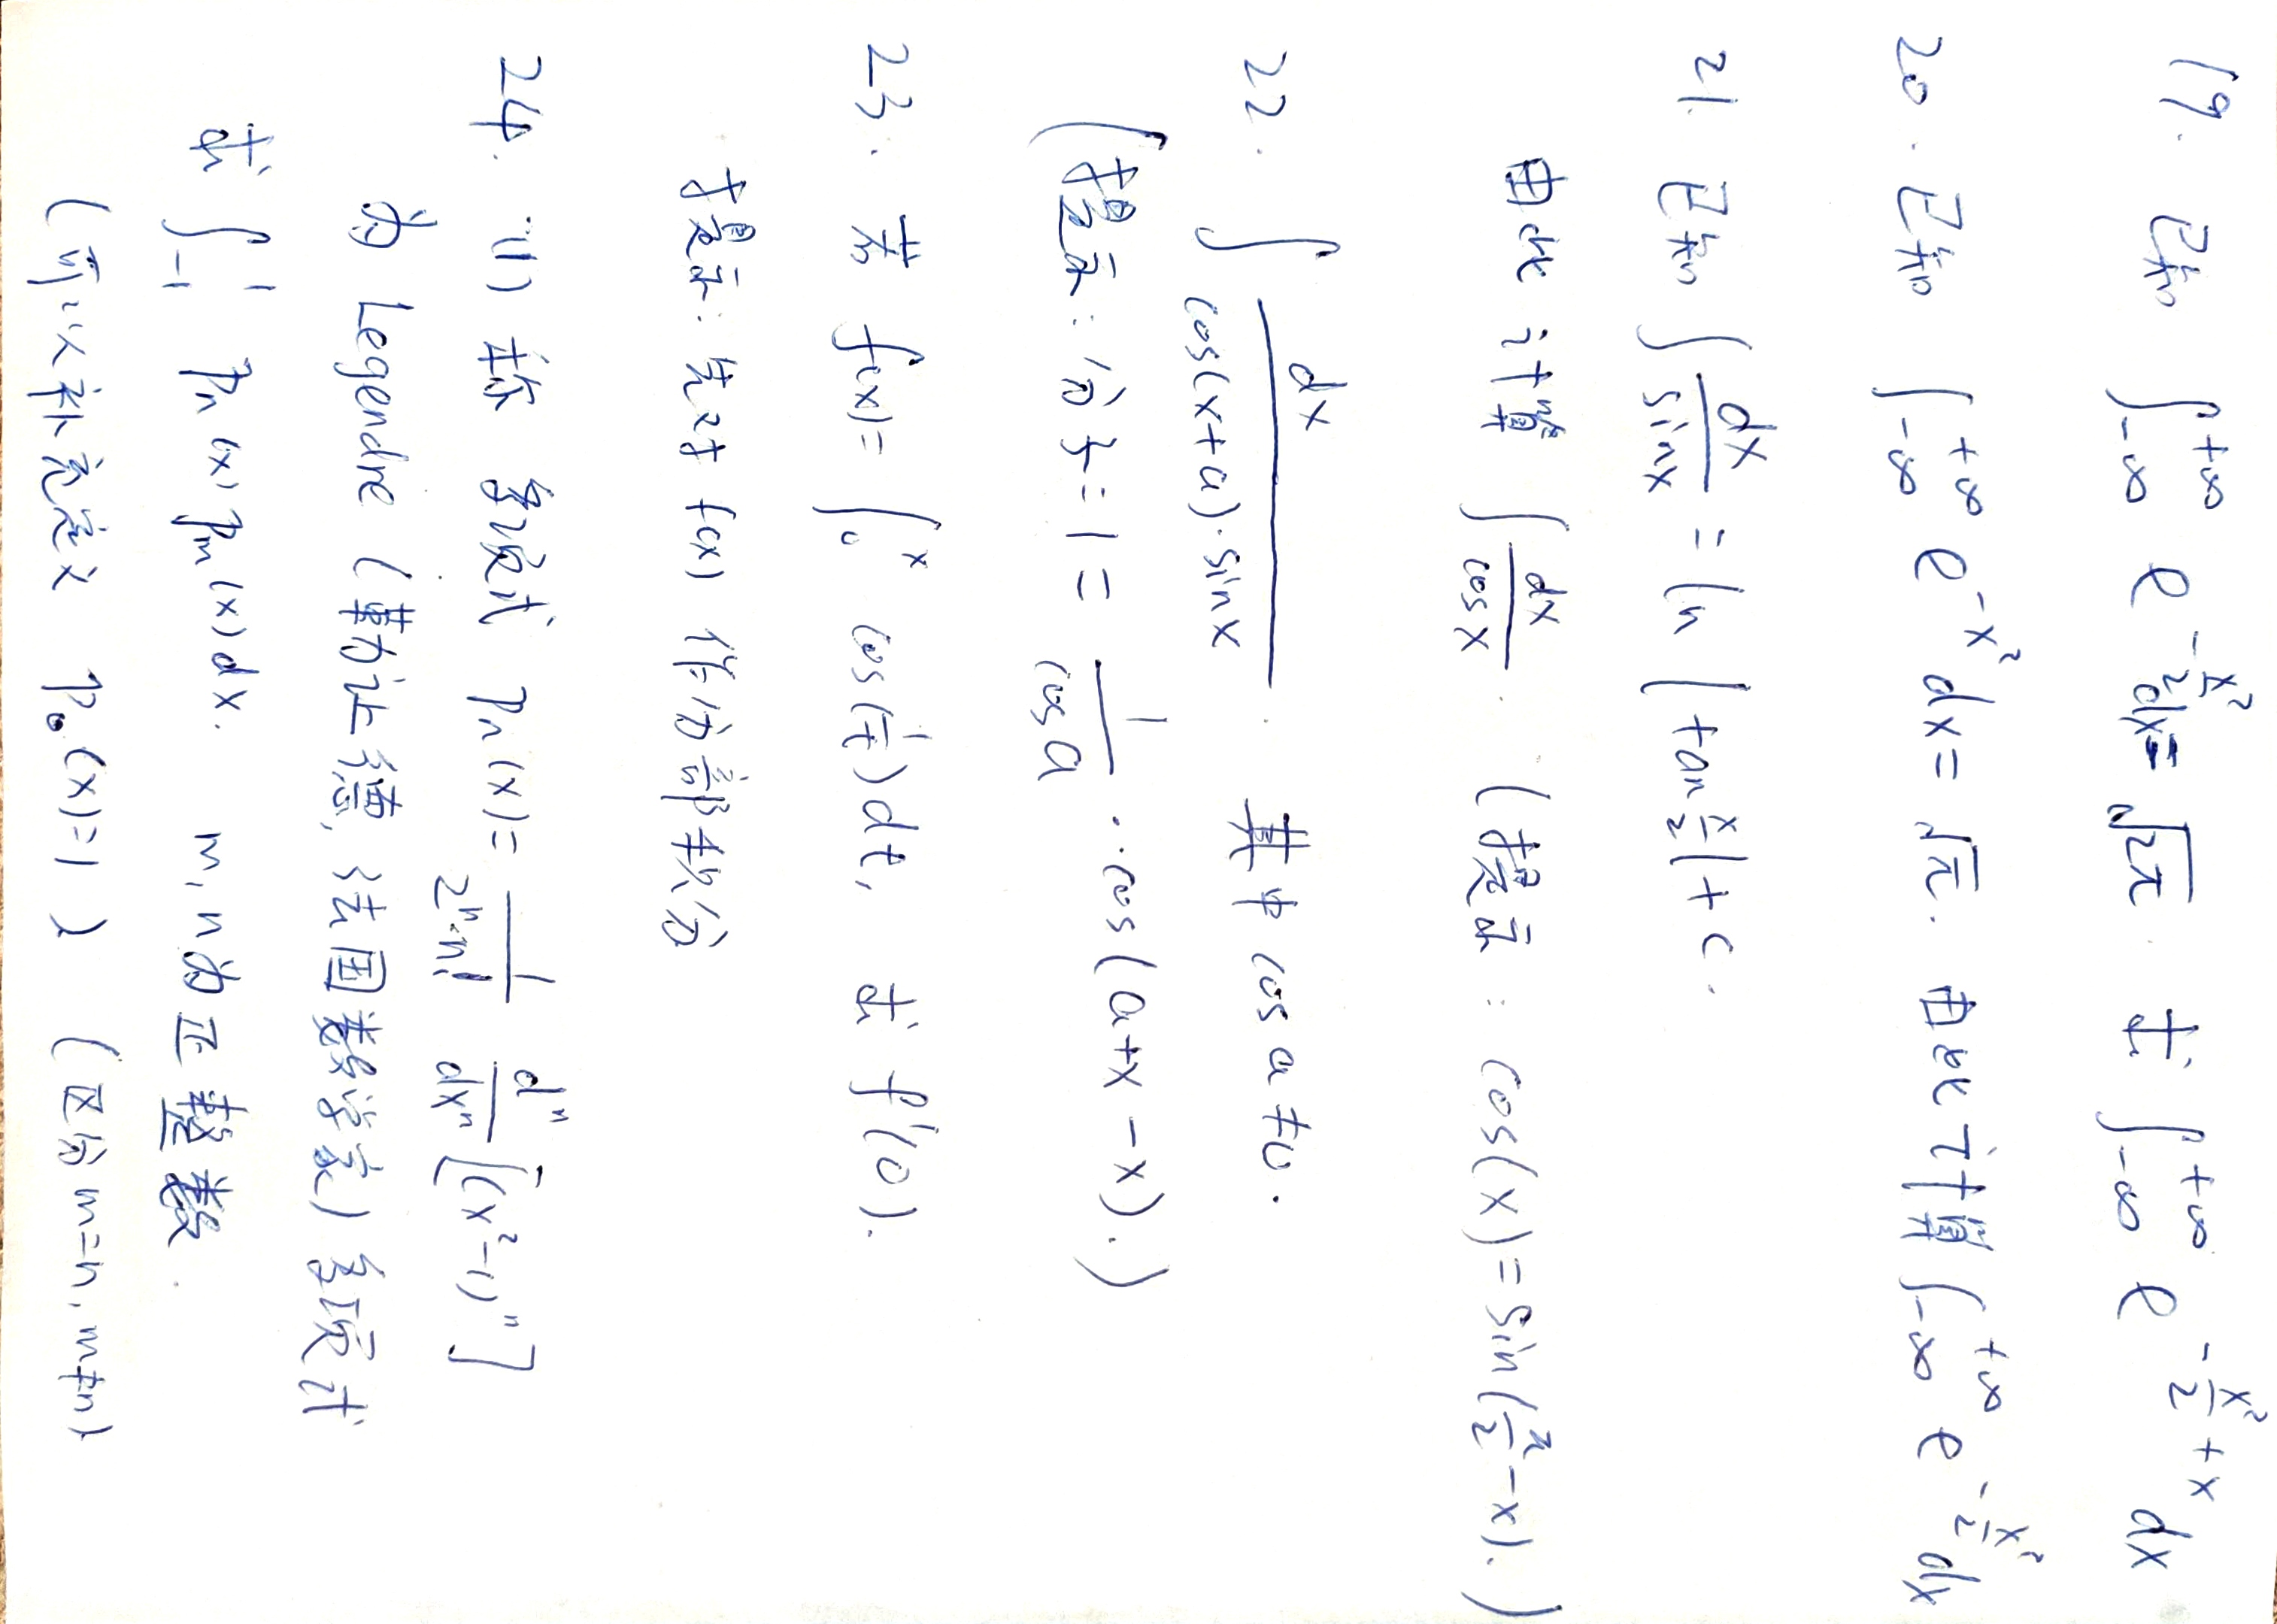 19. 已知 ∫_{-∞}^{+∞} e^{-x²/2} dx = √(2π). 求 ∫_{-∞}^{+∞} e^{-x²/2 + x} dx
20. 已知 ∫_{-∞}^{+∞} e^{-x²} dx = √π. 由此计算 ∫_{-∞}^{+∞} e^{-x²/2} dx
21. 已知 ∫ dx/sinx = ln|tan x/2| + c.
由此计算 ∫ dx/cosx. (提示: cos(x) = sin(π/2 - x).)
22. ∫ dx/(cos(x+a)·sinx). 其中 cos a ≠ 0.
(提示: 分子 = 1 = 1/cos a · cos(a+x-x).)
23. 若 f(x) = ∫_0^x cos(1/t)dt, 求 f'(0).
提示: 先对 f(x) 作分部积分
24. (1) 称 多项式 Pn(x) = 1/(2^n·n!) d^n/dx^n [(x²-1)^n]
为 Legendre (勒让德, 法国数学家) 多项式
求 ∫_{-1}^{1} Pn(x) Pm(x) dx. m, n为正整数.
(可以补充定义 P₀(x)=1) (区分 m=n, m≠n)